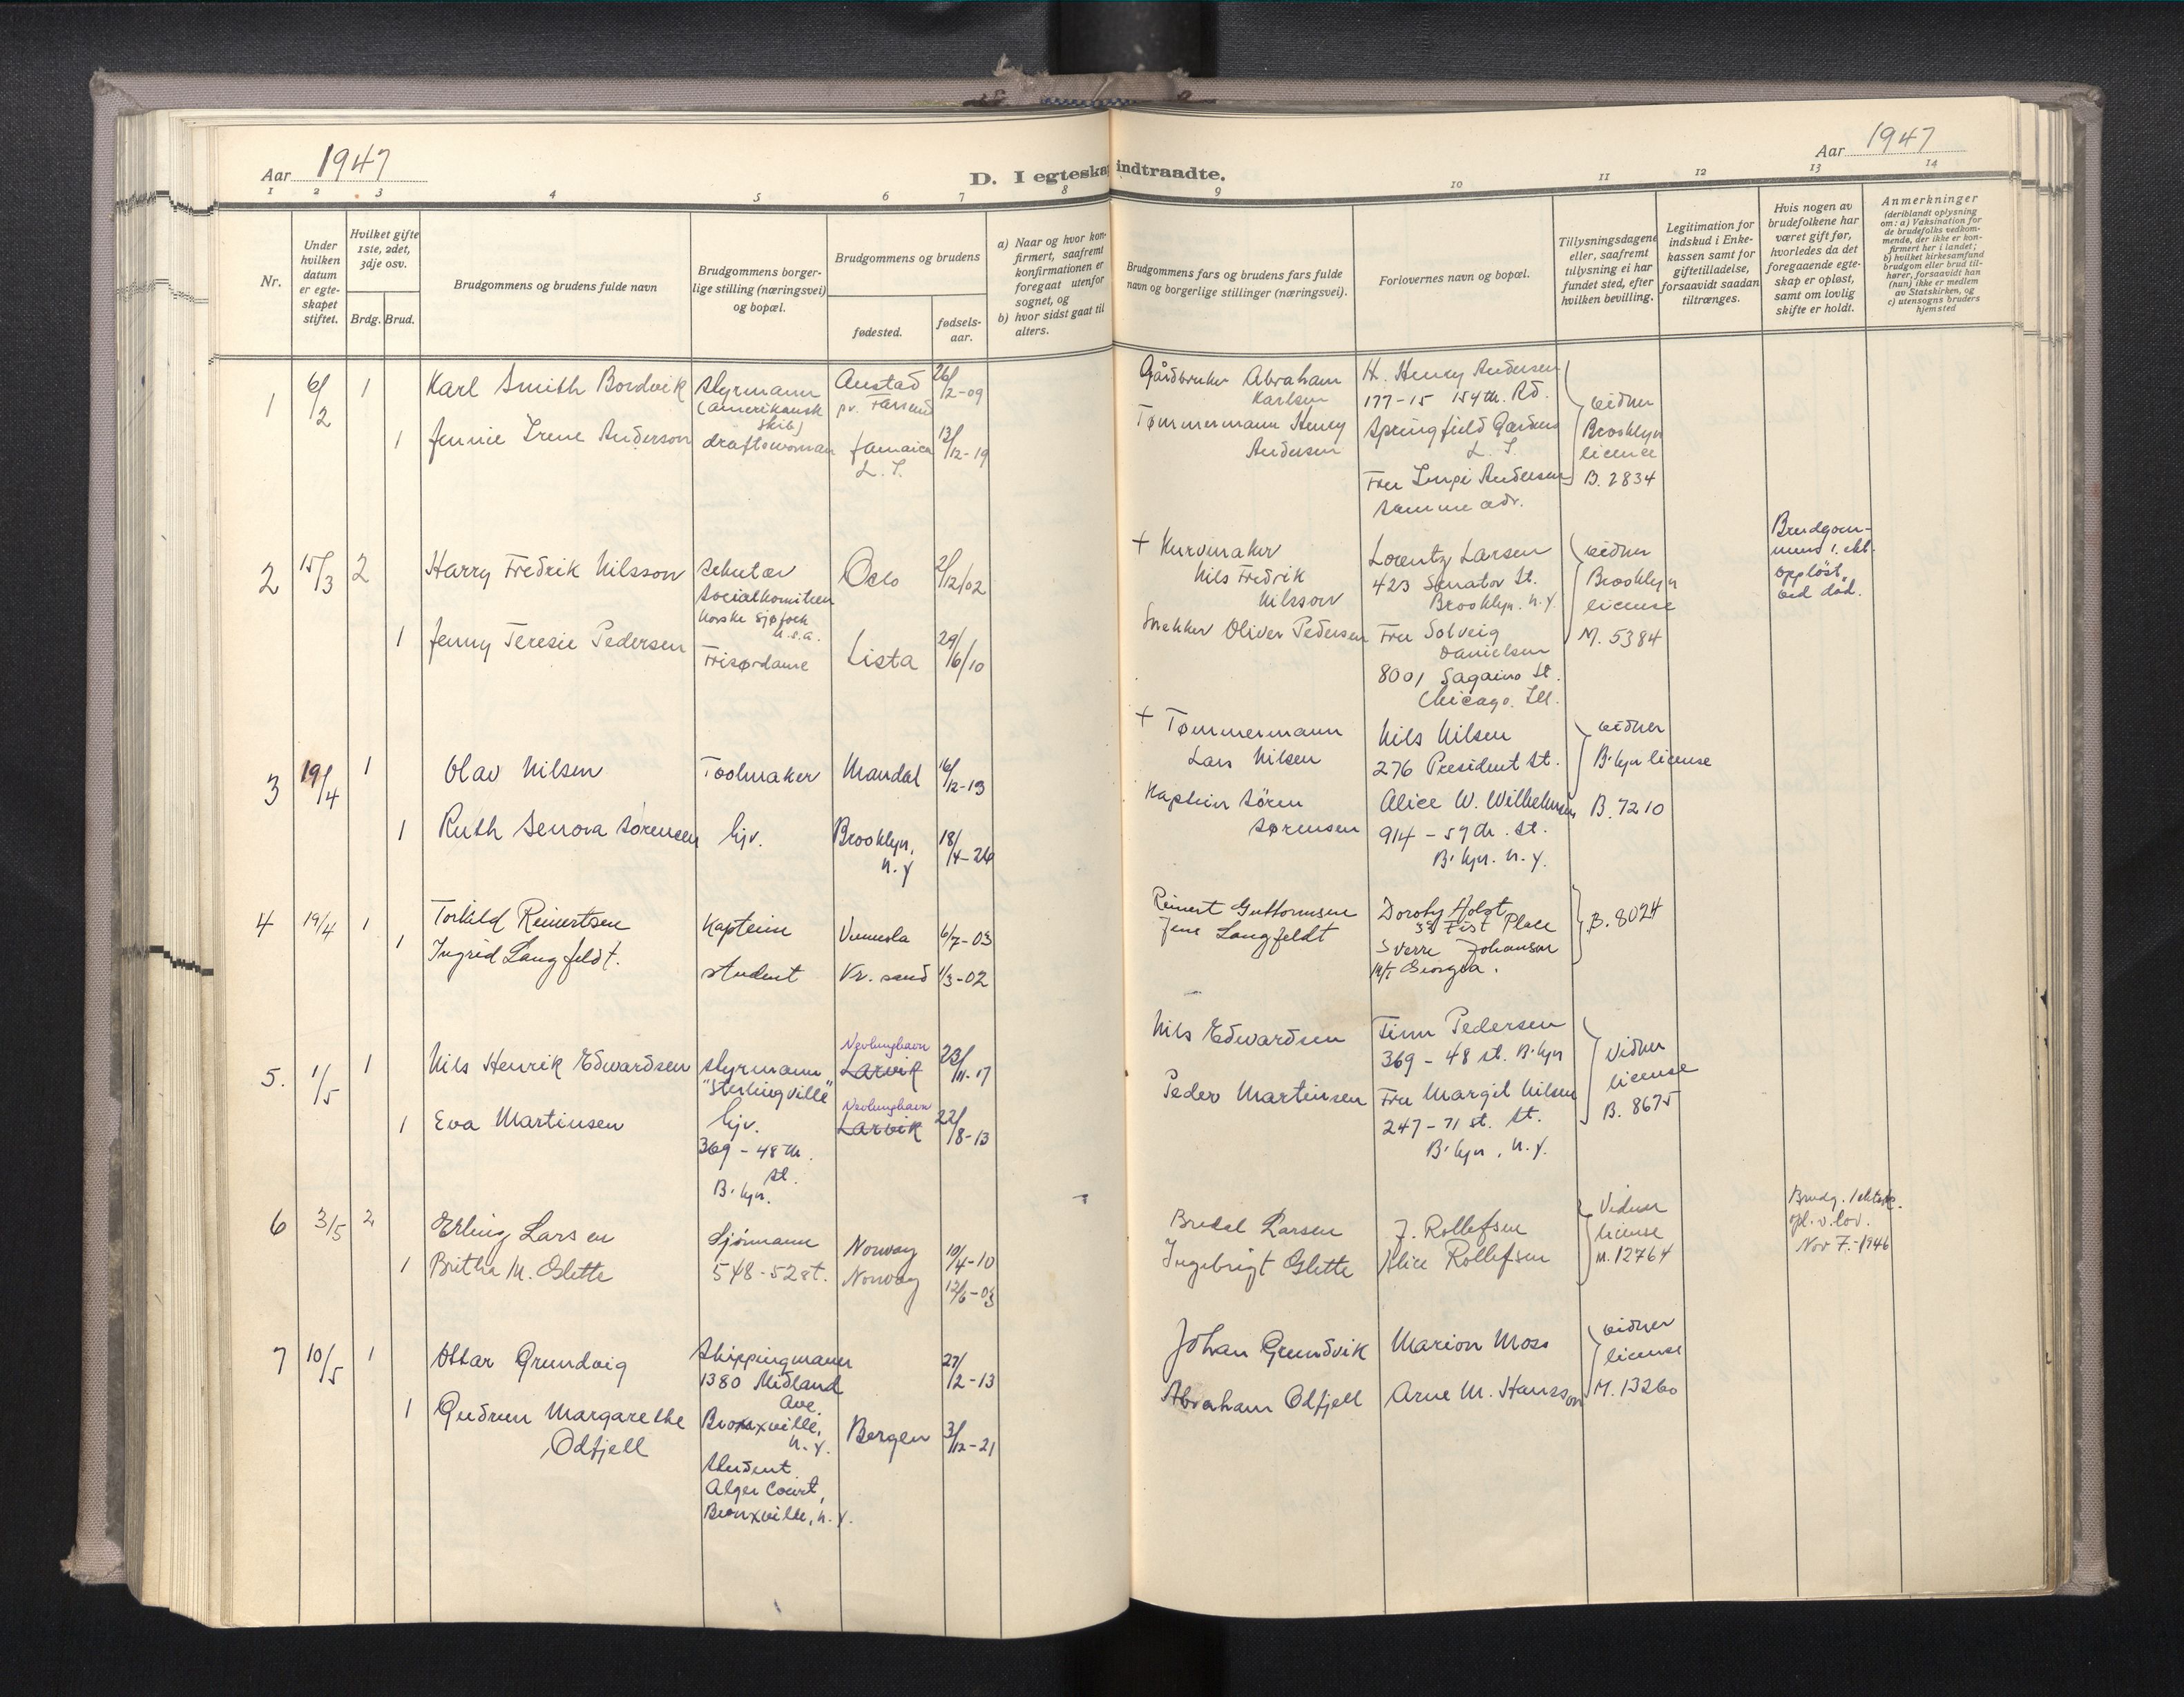 Aar 1947
D. I egteskap indtraadte.
Aar 1947
1 2 3 4 5 6 7 8 9 10 11 12 13 14
Nr.
Under hvilken datum er egteskapet stiftet.
Hvilket gifte 1ste, 2det, 3dje osv.
Brdg. Brud.
Brudgommens og brudens fulde navn
Brudgommens borgerlige stilling (næringsvei) og bopæl.
Brudgommens og brudens
fødested.
fødselsaar.
a) Naar og hvor konfirmert, saafremt konfirmationen er foregaat utenfor sognet, og
b) hvor sidst gaat til alters.
Brudgommens fars og brudens fars fulde navn og borgerlige stillinger (næringsvei).
Forlovernes navn og bopæl.
Tillysningsdagene eller, saafremt tillysning ei har fundet sted, efter hvilken bevilling.
Legitimation for indskud i Enkekassen samt for giftetilladelse, forsaavidt saadan tiltrænges.
Hvis nogen av brudefolkene har været gift før, hvorledes da det foregaaende egteskap er opløst, samt om lovlig skifte er holdt.
Anmerkninger
(deriblandt oplysning om: a) Vaksination for de brudefolks vedkommende, der ikke er konfirmert her i landet; b) hvilket kirkesamfund brudgom eller brud tilhører, forsaavidt han (hun) ikke er medlem av Statskirken, og c) utensogns bruders hjemsted
1 6/2 1 Karl Smith Bordvik
styrmann
(amerikansk
skib)
Austad
pr. Farsund
26/2-09
Gårdbruker Abraham
Karlsen
H. Henry Andersen
177-15 154th. Rd.
Springfield Gardens
L. I.
vidner
Brooklyn
licence
B. 2834
1 Jennie Irene Anderson
draftswoman
Jamaica
L. I.
13/12-19
Tømmermann Henry
Andersen
Fru Limpi Andersen
samme adr.
2 15/3 2 Harry Fredrik Nilsson
sekretær
Socialkomiteen
Norske Sjøfolk
U.S.A.
Oslo
2/12/02
+ Kurvmaker
Nils Fredrik
Nilsson
Lorentz Larsen
423 Senator St.
Brooklyn. N.Y.
vidner
Brooklyn
license
M. 5384
Brudgommens 1. ekt.
oppløst
ved død.
1 Jenny Teresie Pedersen
Frisørdame
Lista
29/6/10
Snekker Oliver Pedersen
Fru Solveig
Danielsen
8001 Sagaino St.
Chicago. Ill.
3 19/4 1 Olav Nilsen
Toolmaker
Mandal
16/12-19
+ Tømmermann
Lars Nilsen
Nils Nilsen
276 President St.
vidner
B'lyn license
B. 7210
1 Ruth Senora Sörensen
hjv.
Brooklyn,
N.Y
18/4-26
Kaptein Sören
Sørensen
Alice W. Wilhelmsen
914 - 59th. St.
B'lyn. N.Y.
4 19/4 1 Torkild Reinertsen
Kaptein
Vennesla
6/7-03
Reinert Guttormsen
Doroty Holst
Place
B. 8024
1 Ingrid Langfeldt.
student
Kr. sand
1/3-02
Jens Langfeldt
Sverre Johanson
M/S Georgia.
5. 1/5 1 Nils Henrik Edwardsen
styrmann
"Sterlingville"
Nevlunghavn
Larvik
23/11-17
Nils Edwardsen
Finn Pedersen
369 - 48 st. B'lyn
Vidner
license
B. 8675
1 Eva Martinsen
hjv.
369 - 48th.
St.
B'lyn.
Nevlunghavn
Larvik
22/8-13
Peder Martinsen
Fru Margit Nilsen
247 - 71 st. St.
B'lyn, N.Y.
6 3/5 2 Erling Larsen
Sjömann
Norway
10/4-10
Bredel Larsen
J. Rollefsen
Vidner
license
M. 12764
Brudg. 1 ektsk.
opl. v. lov.
Nov 7.-1946
1 Britha M. Slette
548-52 st.
Norway
12/6-03
Ingebrigt Slette
Alice Rollefsen
7 10/5 1 Ottar Grundvig
Shippingmann
1380 Midland
Ave.
Bronxville,
N.Y.
27/2-13
Johan Grundvik
Marion Moss
vidner
license
M. 13260
1 Gudrun Margarethe
Odfjell
Student
Alger Court,
Bronxville, N.Y.
Bergen
3/12-21
Abraham Odfjell
Arne M. Hansson